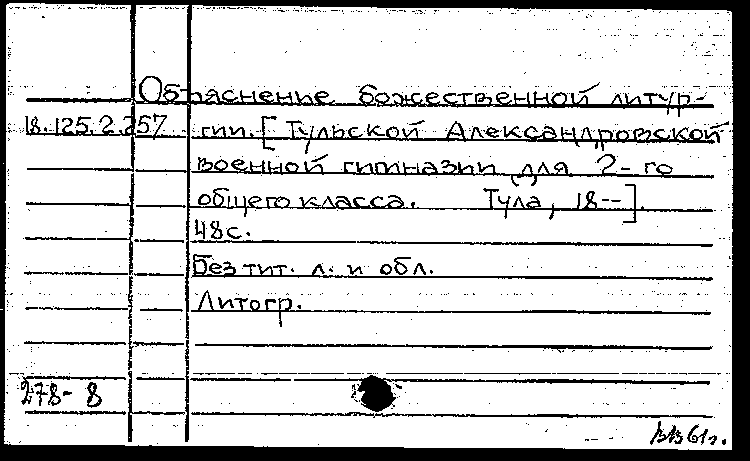 Объяснение божественной литур-
18.125.2.257 гии. [Тульской Александровской
военной гимназии для 2-го
общего класса. Тула, 18--].
48с.
Без тит. л. и обл.
Литогр.
278-8